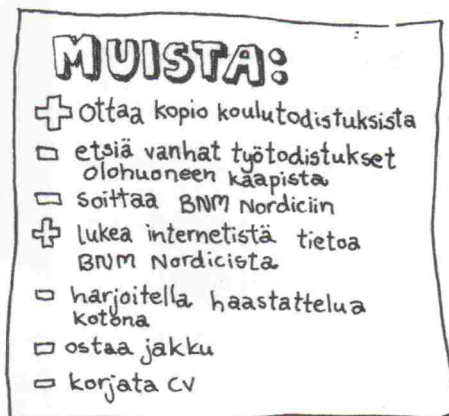 MUISTA:
ottaa kopio koulutodistuksista
etsiä vanhat työtodistukset
olohuoneen kaapista
soittaa BNM Nordiciin
lukea internetistä tietoa
BNM Nordicista
harjoitella haastattelua
kotona
ostaa jakku
korjata CV